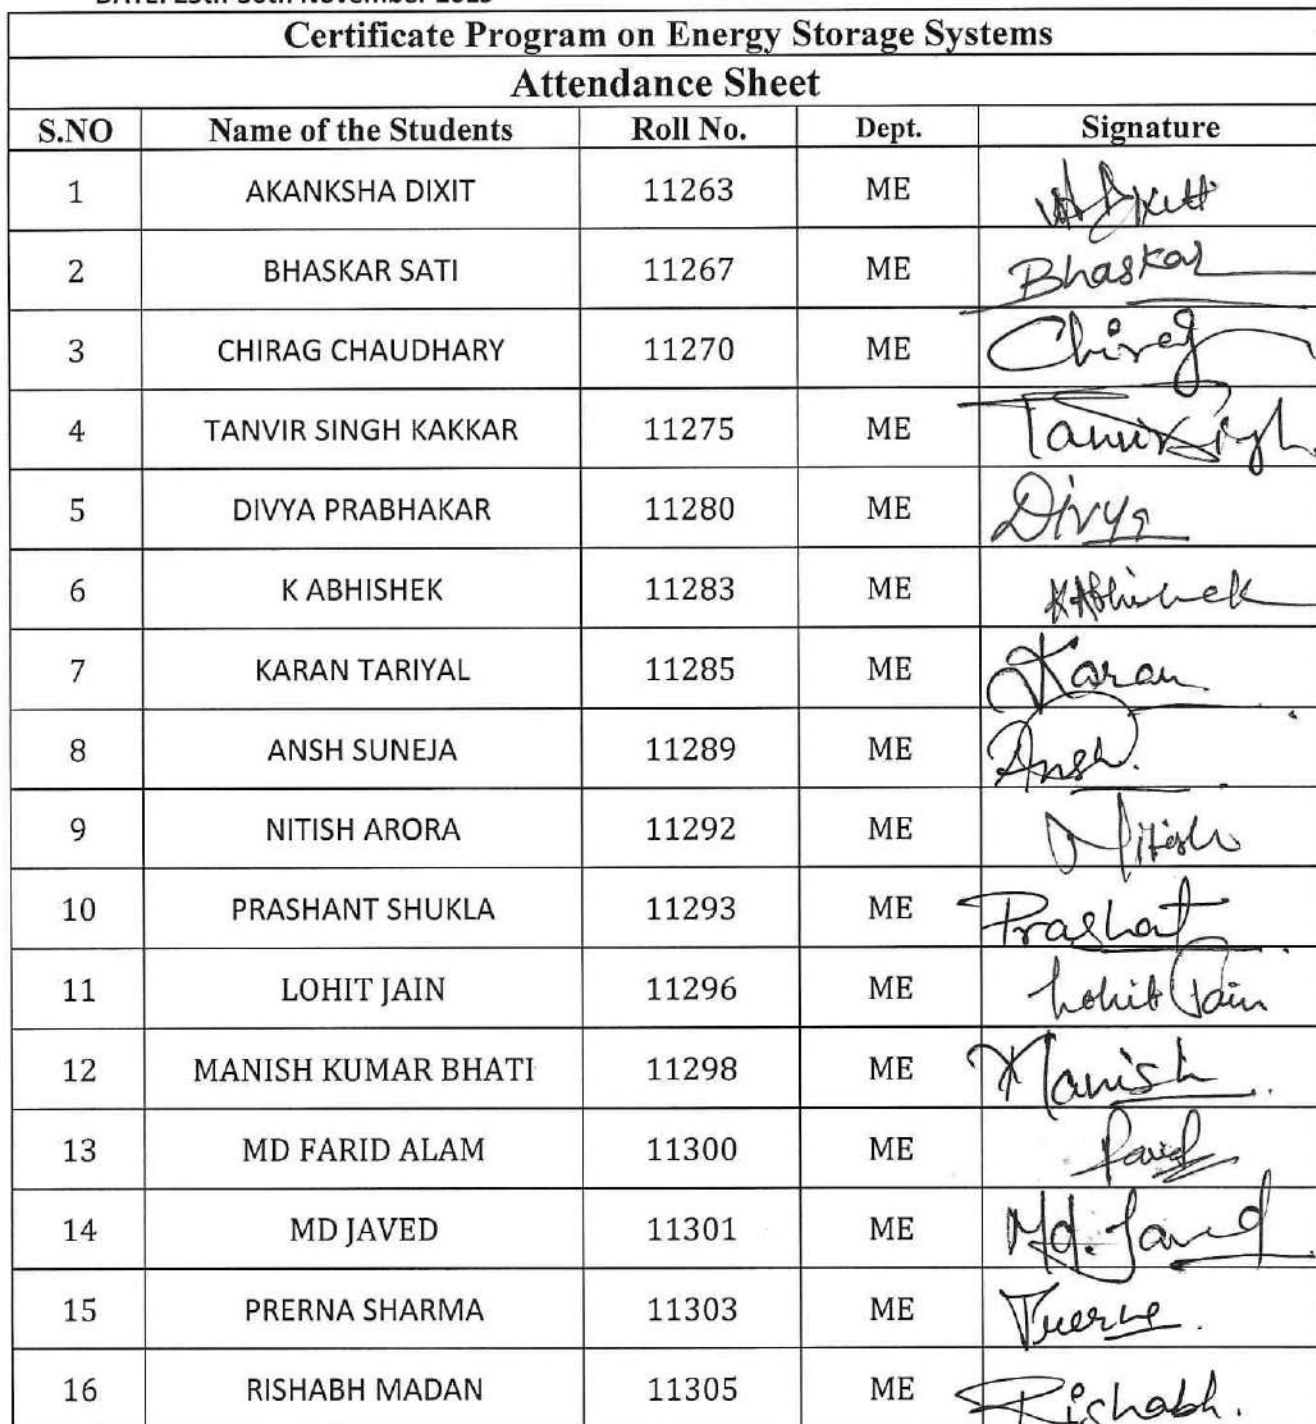 Certificate Program on Energy Storage Systems
Attendance Sheet
S.NO Name of the Students Roll No. Dept. Signature
1 AKANKSHA DIXIT 11263 ME
2 BHASKAR SATI 11267 ME Bhaskar
3 CHIRAG CHAUDHARY 11270 ME Chirag
4 TANVIR SINGH KAKKAR 11275 ME Tanvir Singh
5 DIVYA PRABHAKAR 11280 ME Divya
6 K ABHISHEK 11283 ME KAbhishek
7 KARAN TARIYAL 11285 ME Karan
8 ANSH SUNEJA 11289 ME Ansh.
9 NITISH ARORA 11292 ME Nitish
10 PRASHANT SHUKLA 11293 ME Prashat
11 LOHIT JAIN 11296 ME Lohit Jain
12 MANISH KUMAR BHATI 11298 ME Manish
13 MD FARID ALAM 11300 ME Farid
14 MD JAVED 11301 ME Md. Javed
15 PRERNA SHARMA 11303 ME Prerna
16 RISHABH MADAN 11305 ME Rishabh.